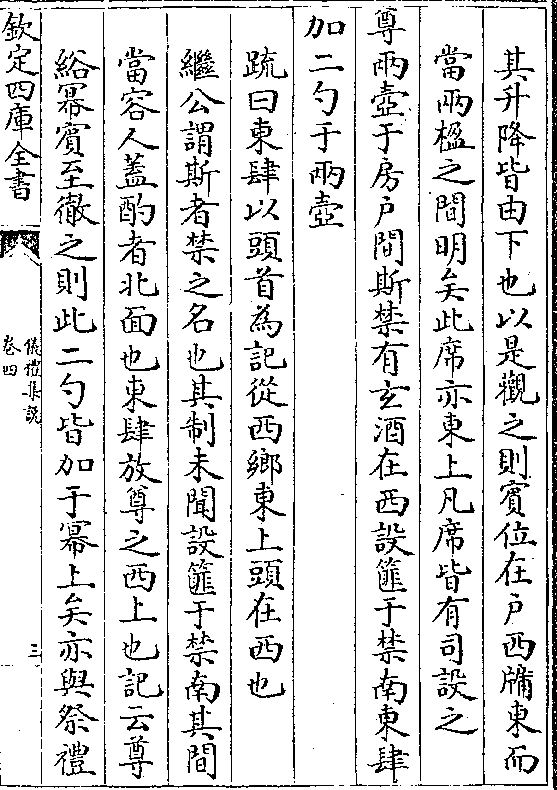 其升降皆由下也以是觀之則賓位在户西牖東而
當兩楹之間明矣此席亦東上凡席皆有司設之
尊兩壺于房户間斯禁有玄酒在西設篚于禁南東肆
加二勺于兩壺
疏曰東肆以頭首為記從西鄉東上頭在西也
繼公謂斯者禁之名也其制未聞設篚于禁南其間
當容人蓋酌者北面也東肆放尊之西上也記云尊
綌冪賓至徹之則此二勺皆加于冪上矣亦與祭禮
欽定四庫全書
儀禮集說
卷四
三